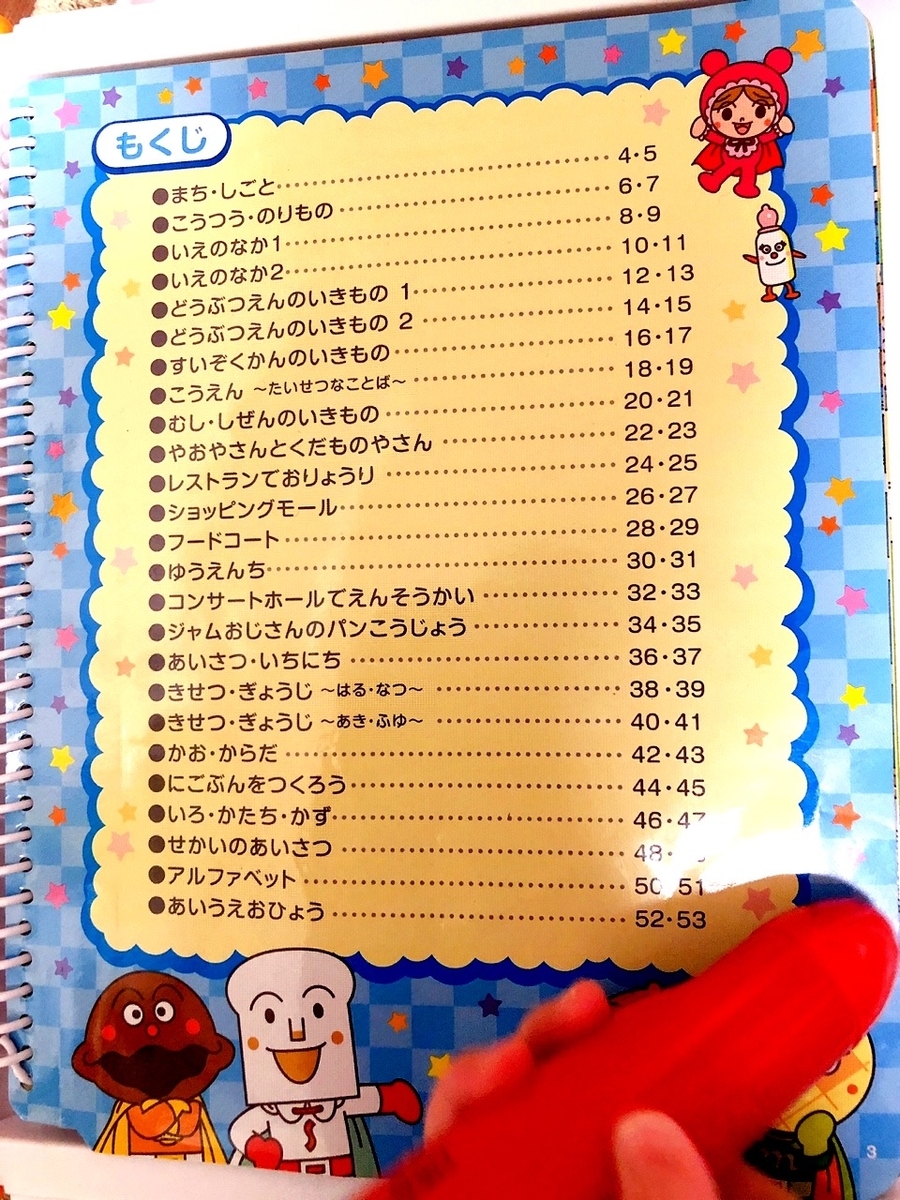 もくじ
●まち・しごと 4・5
●こうつう・のりもの 6・7
●いえのなか1 8・9
●いえのなか2 10・11
●どうぶつえんのいきもの 1 12・13
●どうぶつえんのいきもの 2 14・15
●すいぞくかんのいきもの 16・17
●こうえん ～たいせつなことば～ 18・19
●むし・しぜんのいきもの 20・21
●やおやさんとくだものやさん 22・23
●レストランでおりょうり 24・25
●ショッピングモール 26・27
●フードコート 28・29
●ゆうえんち 30・31
●コンサートホールでえんそうかい 32・33
●ジャムおじさんのパンこうじょう 34・35
●あいさつ・いちにち 36・37
●きせつ・ぎょうじ ～はる・なつ～ 38・39
●きせつ・ぎょうじ ～あき・ふゆ～ 40・41
●かお・からだ 42・43
●にごぶんをつくろう 44・45
●いろ・かたち・かず 46・47
●せかいのあいさつ 48・
●アルファベット 50・51
●あいうえおひょう 52・53
3